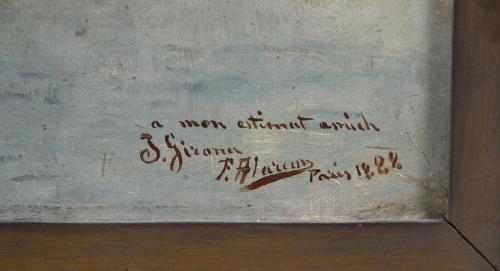 a mon estimat amich
J. Girona
F. Alarcon Paris 1888